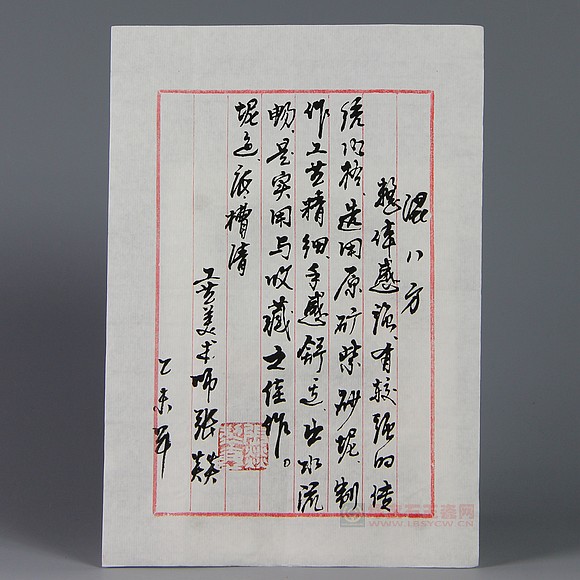 混八方
整体感强、有较强的传
统风格、选用原矿紫砂泥、制
作工艺精细、手感舒适、出水流
畅、是实用与收藏之佳作。
泥色、底槽清
工艺美术师张燚
乙未年
WWW.LESYCW.CN